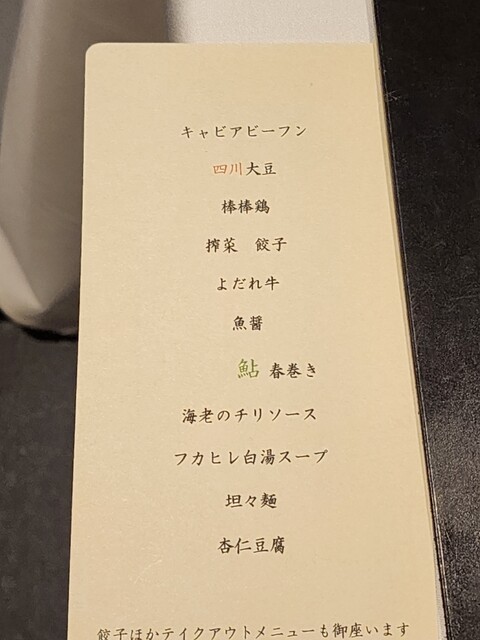 キャビアビーフン
四川大豆
棒棒鶏
搾菜　餃子
よだれ牛
魚醤
鮎 春巻き
海老のチリソース
フカヒレ白湯スープ
坦々麺
杏仁豆腐
餃子ほかテイクアウトメニューも御座います